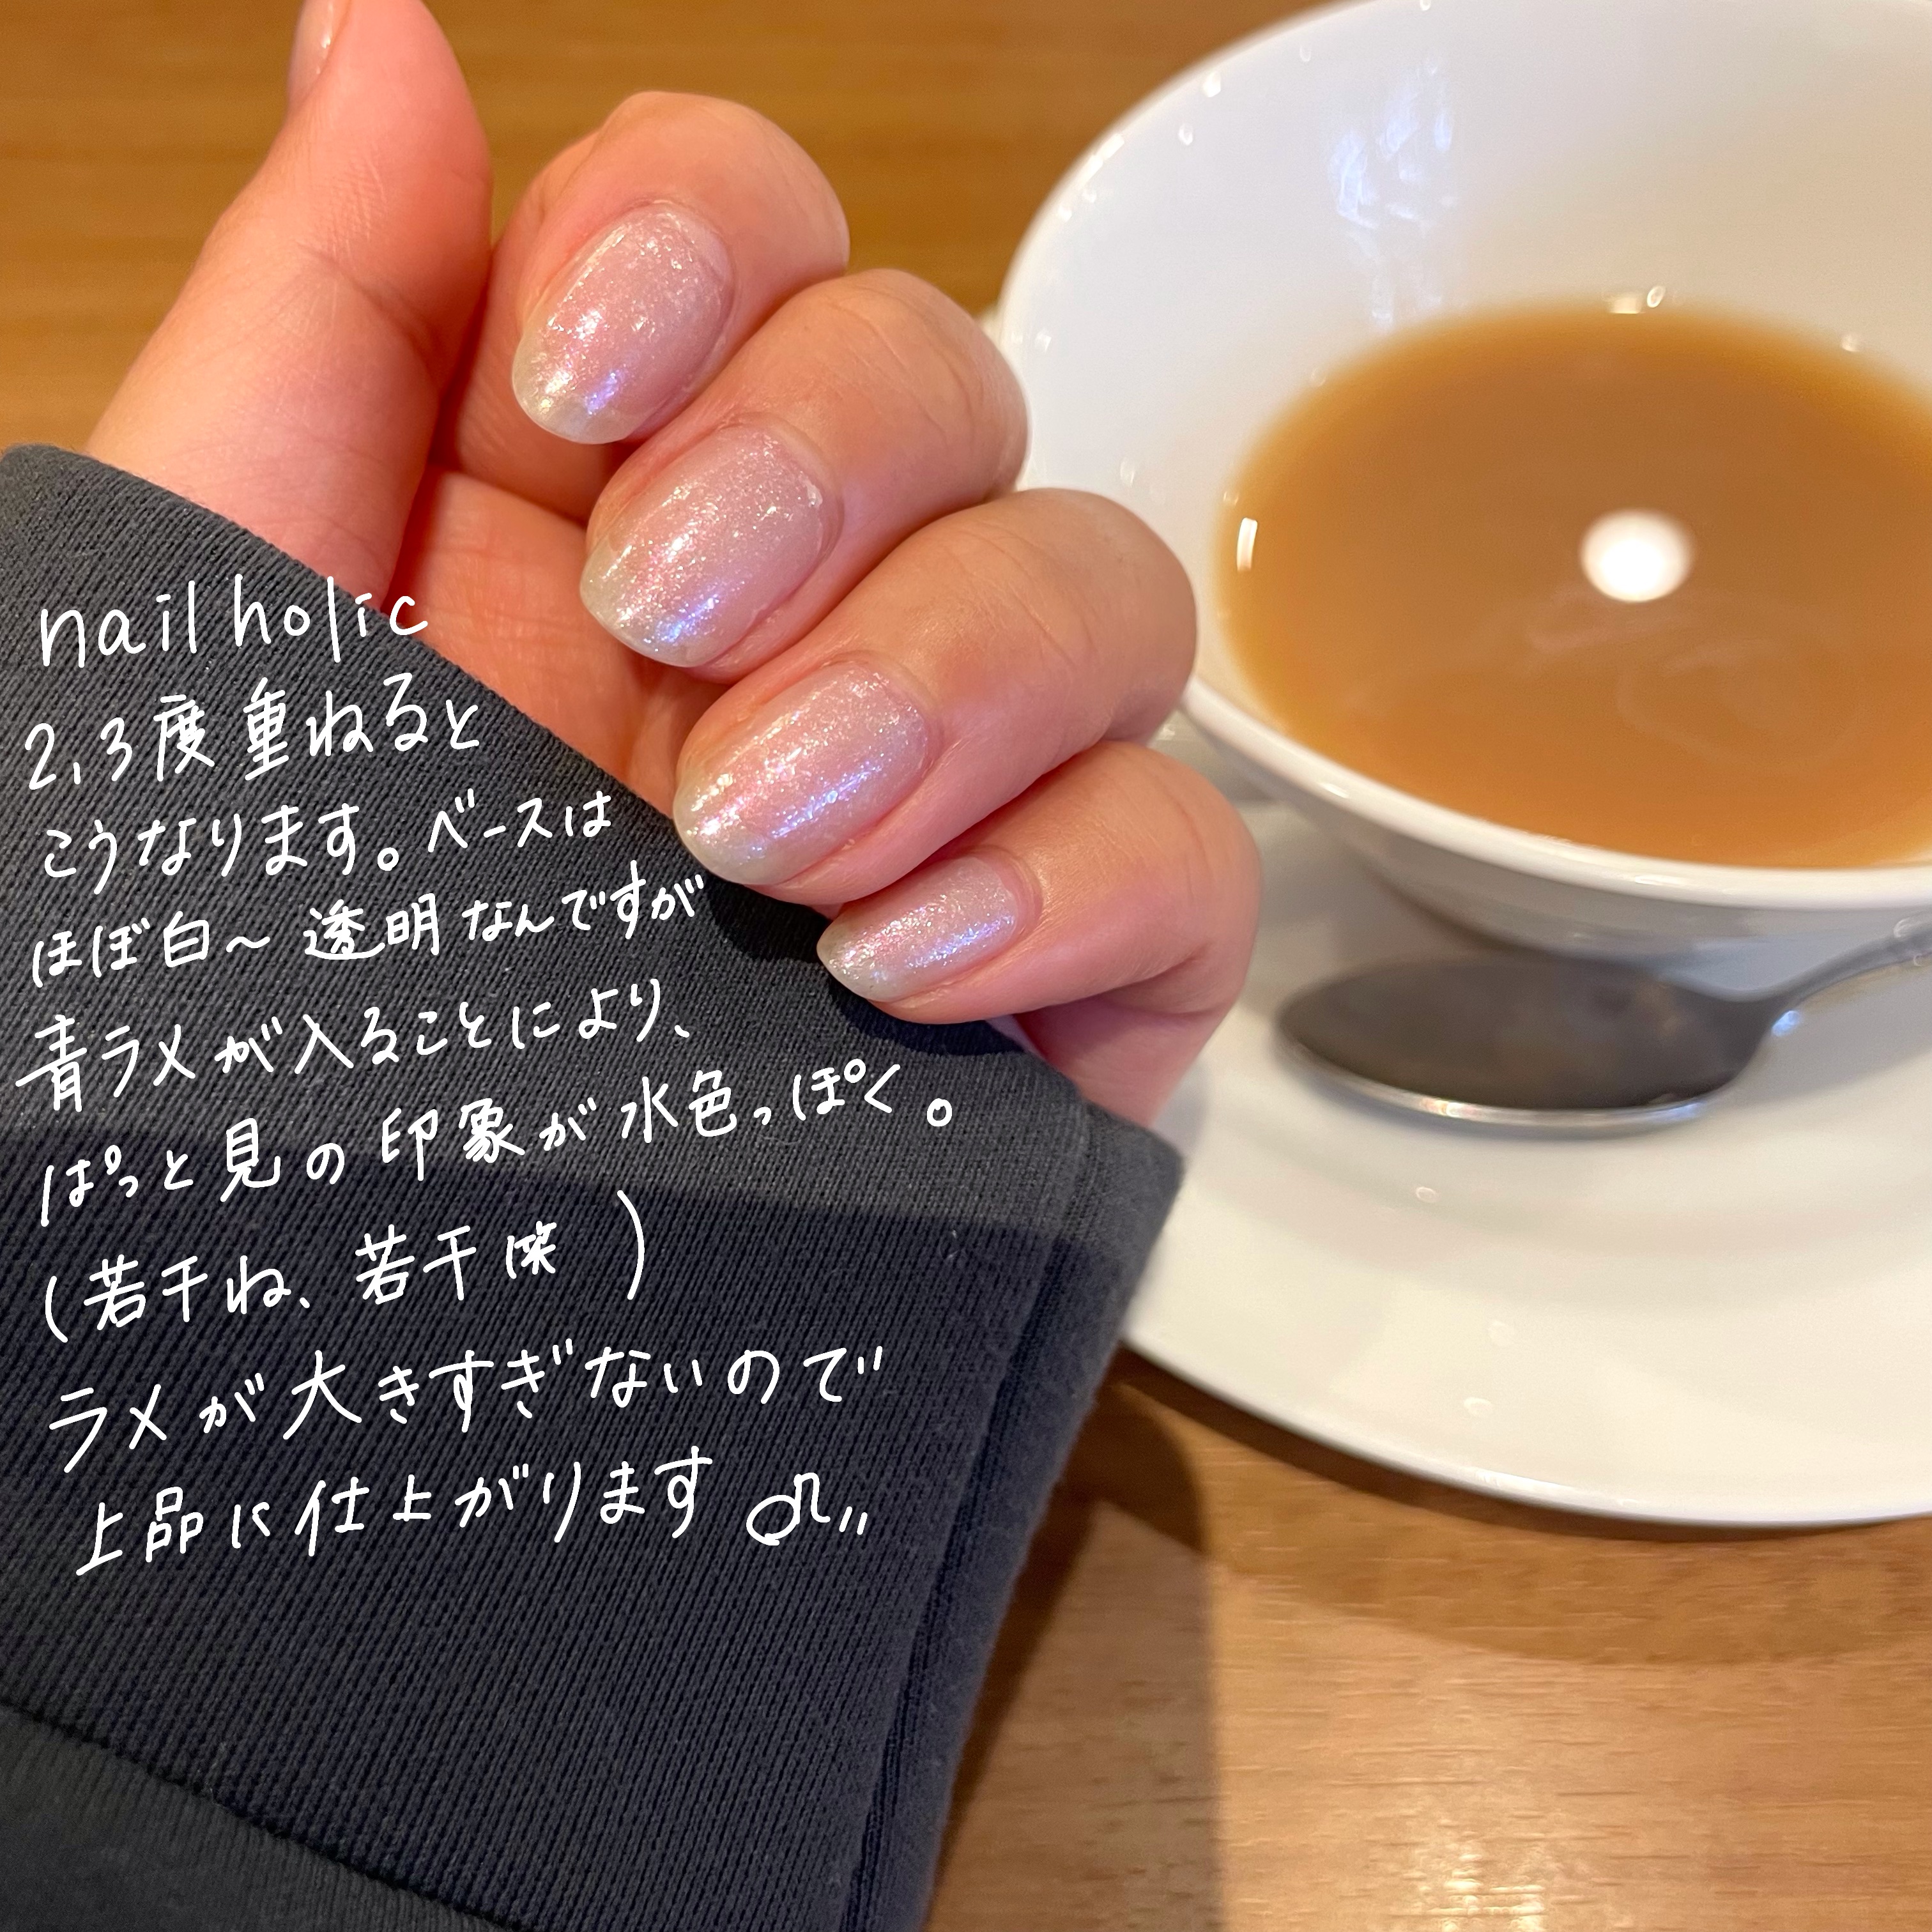 nail holic
2,3度重ねると
こうなります。ベースは
ほぼ白〜透明なんですが
青ラメが入ることにより、
ぱっと見の印象が水色っぽく。
(若干ね、若干笑)
ラメが大きすぎないので
上品に仕上がります